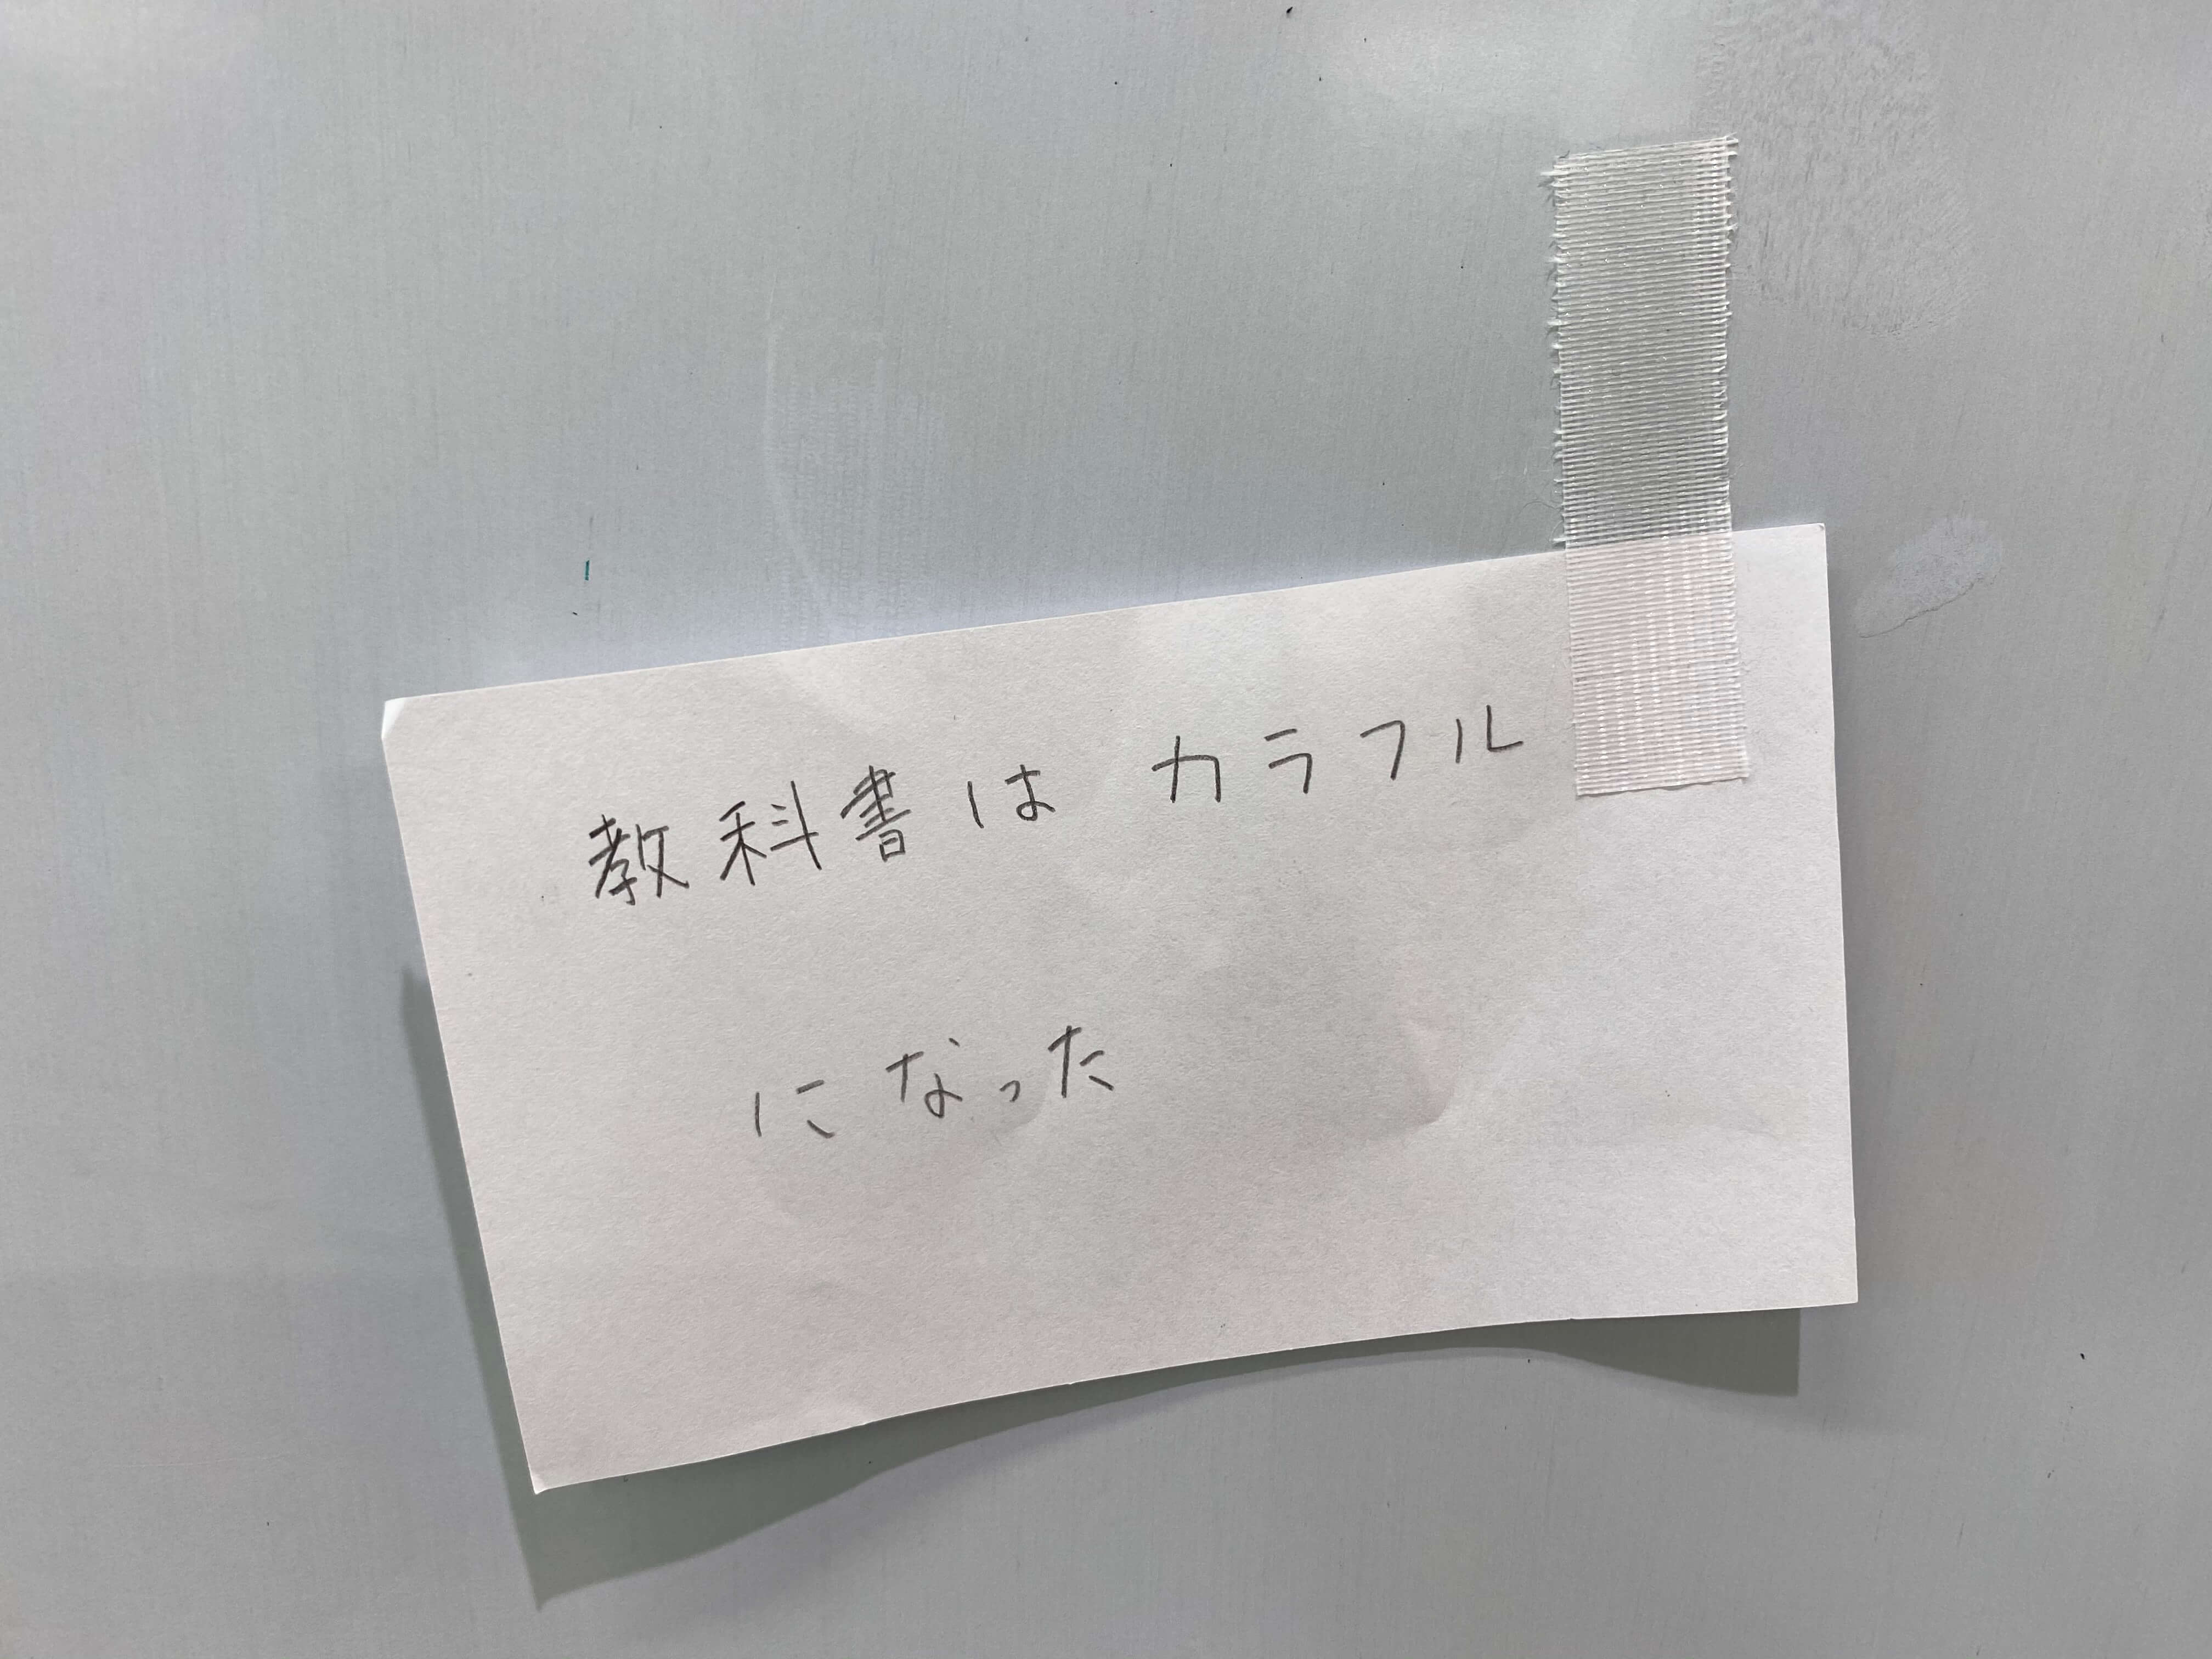 教科書は カラフル
になった